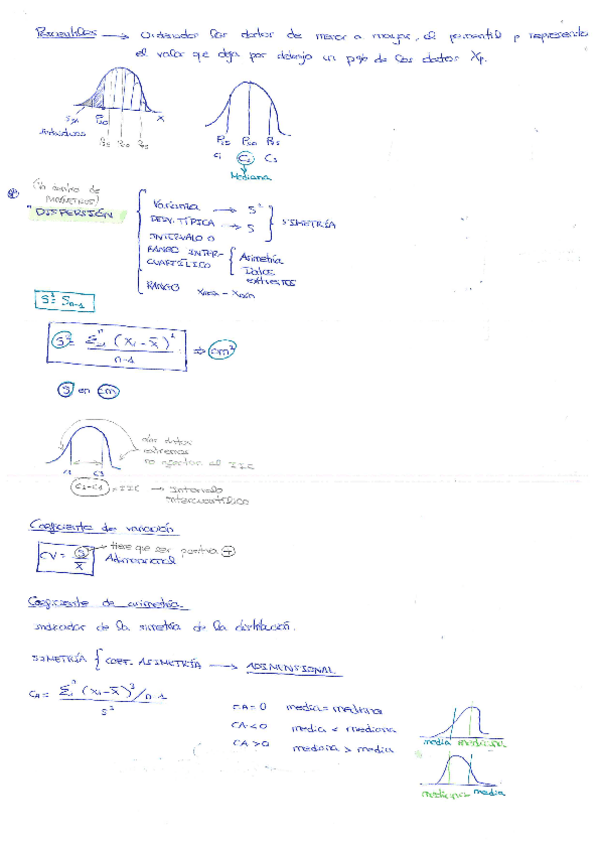 Percentiles → Ordenados los datos de menor a mayor, el percentil p representa
el valor que deja por debajo un p% de los datos Xp.
P50 X
individuos P25 P50 P75
P25 P50 P75
C1 C2 C3
Mediana
"DISPERSIÓN
Varianza → S²
DESV. TÍPICA → S
SIMETRÍA
INTERVALO O
RANGO INTER-
CUARTÍLICO
Asimetría
Datos
extremos
RANGO Xmax - Xmin
S = Sn-1
S² = Σ (xi - x̄)² / n-1 ⇒ cm²
S en cm
los datos
extremos
no afectan al IIC
C1 C3
C3-C1 = IIC → Intervalo
intercuartílico
Coeficiente de variación
CV = S / X̄
tiene que ser positiva +
Adimensional
Coeficiente de asimetría.
Indicador de la simetría de la distribución.
SIMETRÍA { COEF. ASIMETRÍA → ADIMENSIONAL
CA = Σ (xi - x̄)³/n-1 / S³
CA=0 media = mediana
CA<0 media < mediana
CA>0 mediana > media
media mediana
mediana media